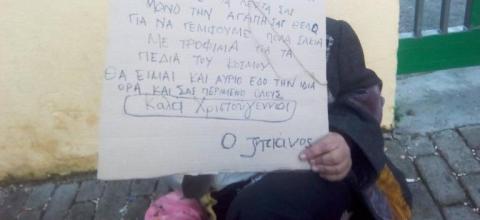 ΤΑ ΛΕΦΤΑ ΣΑΣ
ΜΟΝΟ ΤΗΝ ΑΓΑΠΗ ΣΑΣ ΘΕΛΩ
ΓΙΑ ΝΑ ΓΕΜΙΣΟΥΜΕ ΠΟΛΑ ΣΑΚΙΑ
ΜΕ ΤΡΟΦΙΜΑ ΓΙΑ ΤΑ
ΠΕΔΙΑ ΤΟΥ ΚΟΣΜΟΥ
ΘΑ ΕΙΜΑΙ ΚΑΙ ΑΥΡΙΟ ΕΔΟ ΤΗΝ ΙΔΙΑ
ΟΡΑ ΚΑΙ ΣΑΣ ΠΕΡΙΜΕΝΟ ΟΛΟΥΣ
Καλα Χριστουγεννα
Ο ζητιάνος